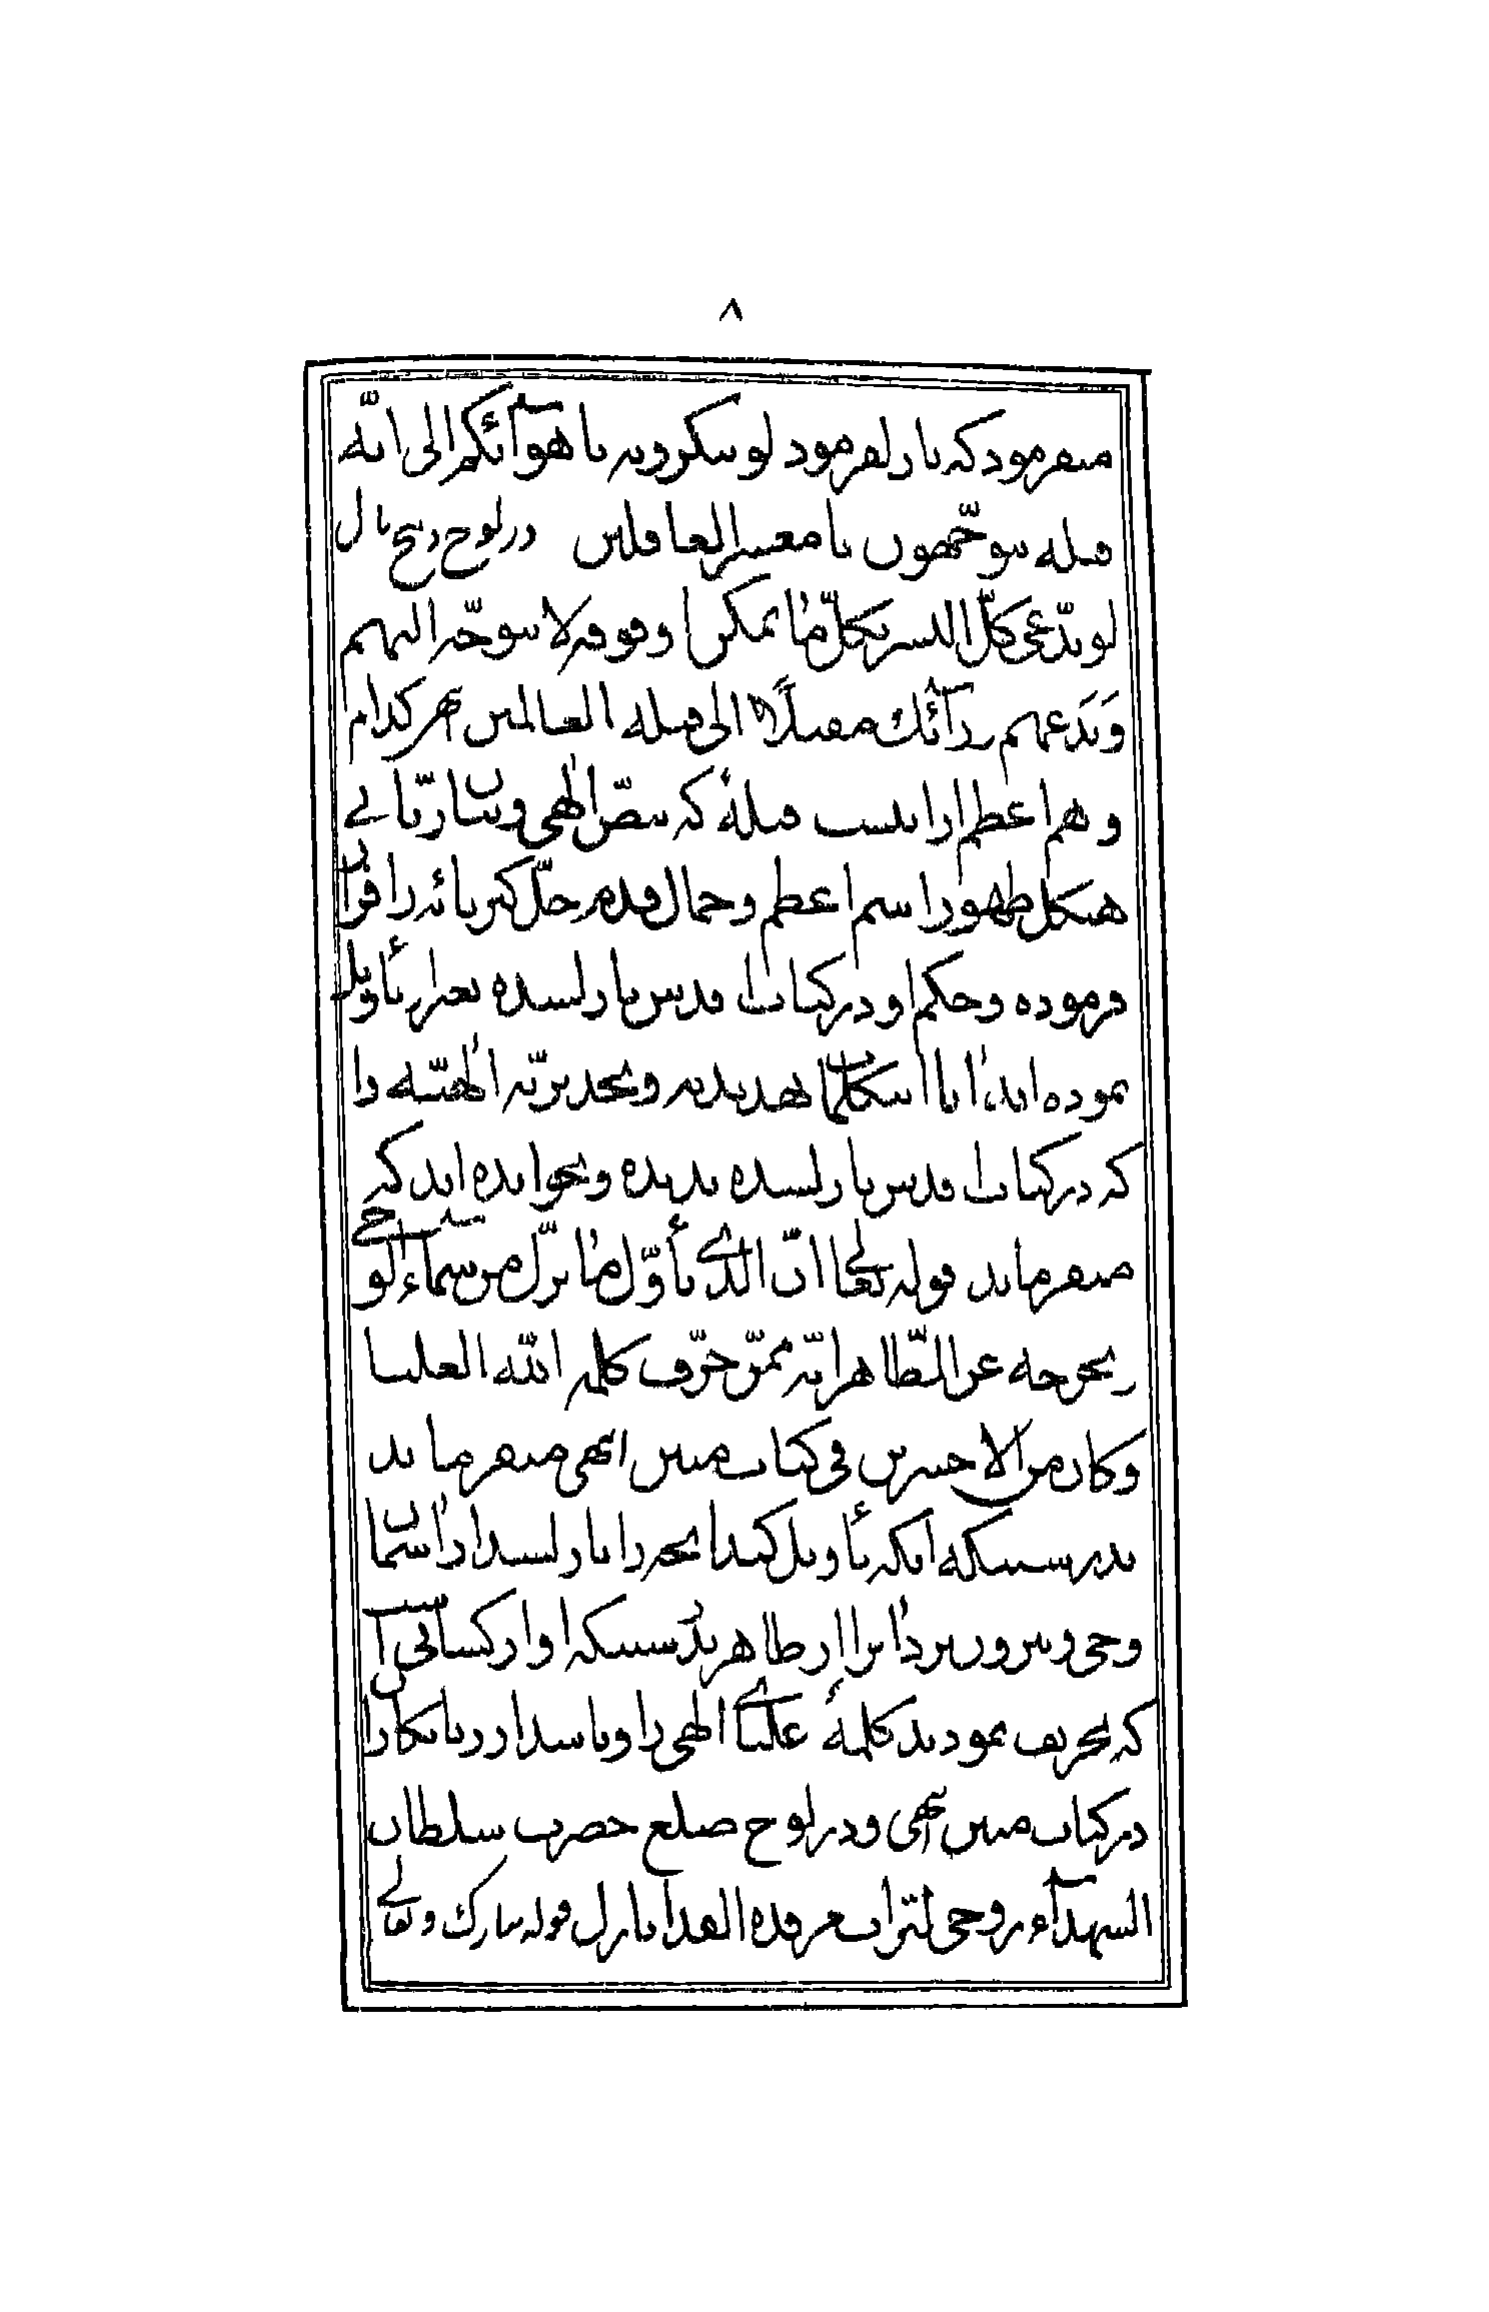 ٨
میفرمود که نازل فرمود لو تنکرونه باهوآئکم الی ایّه
قبله تتوجّهون یا معشر الغافلین در لوح ذبیح نازل
لو یدّعی کلّ البشر بکلّ ما یمکن او فوقه لا تتوجّه الیهم
وَدَعهم ورآئک مقبلاً الی قبلة العالمین بهر کدام
و هم اعظم از اینست قبلهٔ که بنصّ الٰهی و بیان ربّانی
هیکل ظهور اسم اعظم و جمال قدم جلّ کبریائه را قرار
فرموده و حکم او در کتاب اقدس نازلشده بغیر از تأویل
نموده‌اند، ایا این کلمات تهدیدیه و تحذیریّه الٰهیّه را
که در کتاب اقدس نازلشده ندیده و نخوانده‌اند که
میفرماید قوله تعالی انّ الذی یأوّل ما نزّل من سمآء الوحی
و یخرجه عن الظّاهر انّه ممّن حرّف کلمة الله العلیا
و کان من الاخسرین فی کتاب مبین انتهی میفرماید
بدرستیکه انکه تأویل کند انچه را نازلشد از اسمان
وحی و بیرون برد انرا از ظاهر بدرستیکه او از کسانی است
که تحریف نمودند کلمهٔ علیای الهی را و باشد از زیانکاران
در کتاب مبین انتهی و در لوح ضلع حضرت سلطان
الشهدآء روحی لتراب مرقده الفدا نازل قوله تبارک و تعالی